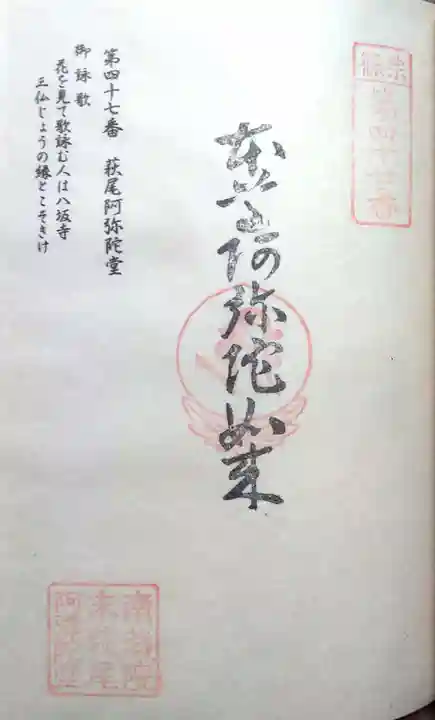 篠栗
第四十七番
本尊阿弥陀如来
第四十七番 萩尾阿弥陀堂
御詠歌
花を見て歌詠む人は八坂寺
三仏じょうの縁とこそきけ